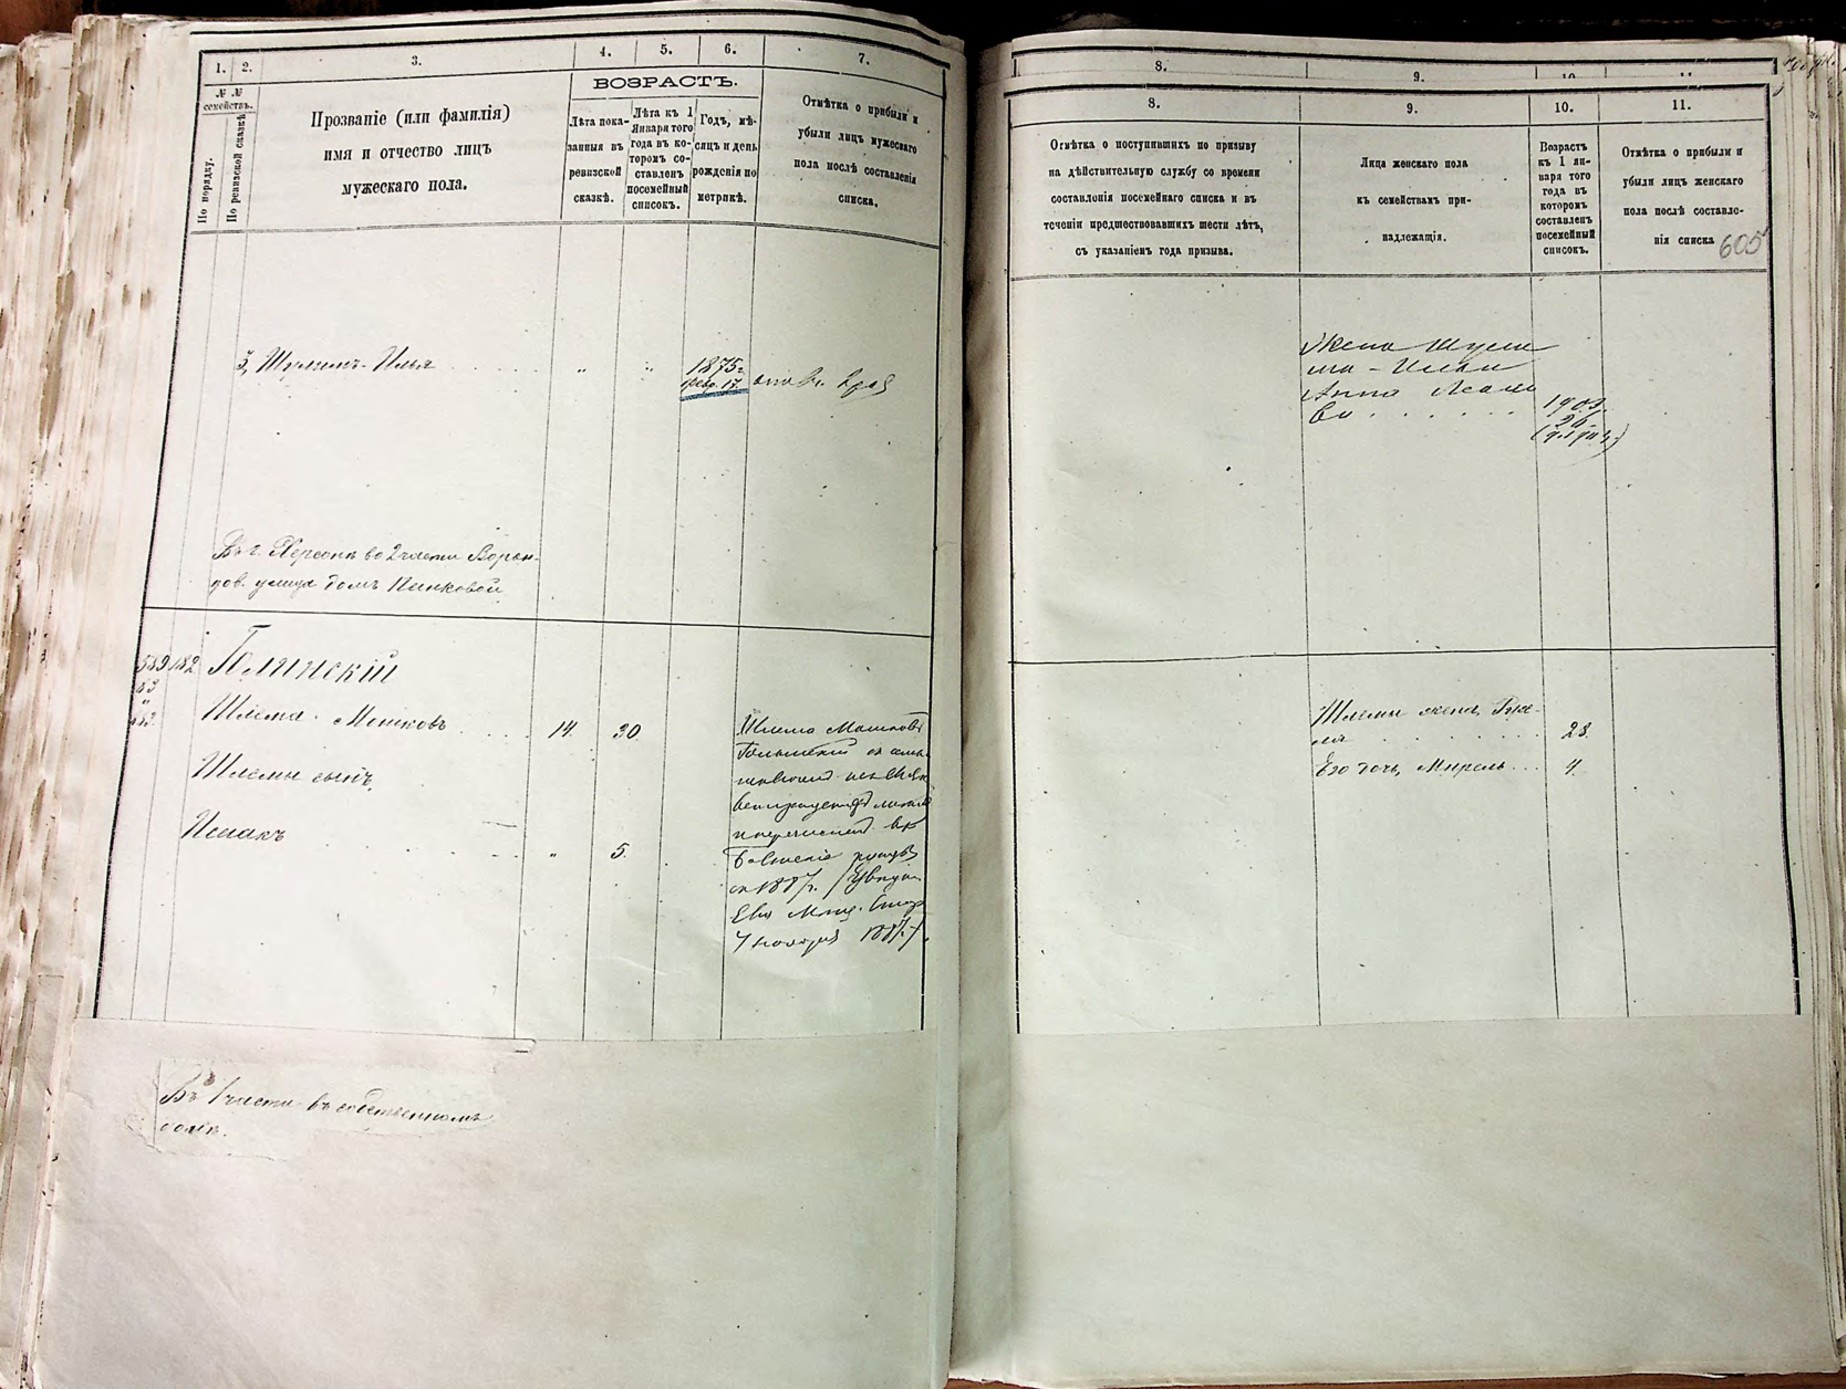 1. 2. 3. 4. 5. 6. 7.
№ №
семействъ.
По порядку.
По ревизской сказкѣ
Прозваніе (или фамилія)
имя и отчество лицъ
мужескаго пола.
ВОЗРАСТЪ.
Лѣта пока-
занныя въ
ревизской
сказкѣ.
Лѣта къ 1
Января того
года въ ко-
торомъ со-
ставленъ
посемейный
списокъ.
Годъ, мѣ-
сяцъ и день
рожденія по
метрикѣ.
Отмѣтка о прибыли и
убыли лицъ мужескаго
пола послѣ составленія
списка.
3, Шулимъ-Илья
1875 г.
февр. 17.
Въ г. Херсонѣ во 2 части Ворон-
цов. улица домъ Пинковой
539 182
53
Шлема Мошковъ 14. 30.
Шлемы сынъ,
Исаакъ " 5.
Шлема Мошковъ
1887 г.
Въ 1 части въ собственномъ
домѣ.
8. 9. 10. 11.
8. 9. 10. 11.
Отмѣтка о поступившихъ по призыву
на дѣйствительную службу со времени
составленія посемейнаго списка и въ
теченіи предшествовавшихъ шести лѣтъ,
съ указаніемъ года призыва.
Лица женскаго пола
къ семействамъ при-
надлежащія.
Возрастъ
къ 1 ян-
варя того
года въ
которомъ
составленъ
посемейный
списокъ.
Отмѣтка о прибыли и
убыли лицъ женскаго
пола послѣ составле-
нія списка
605
Жена Шули
ма-Ильи
Анна
1903.
26
Шлемы жена,
23.
Его дочь, Мирель 4.